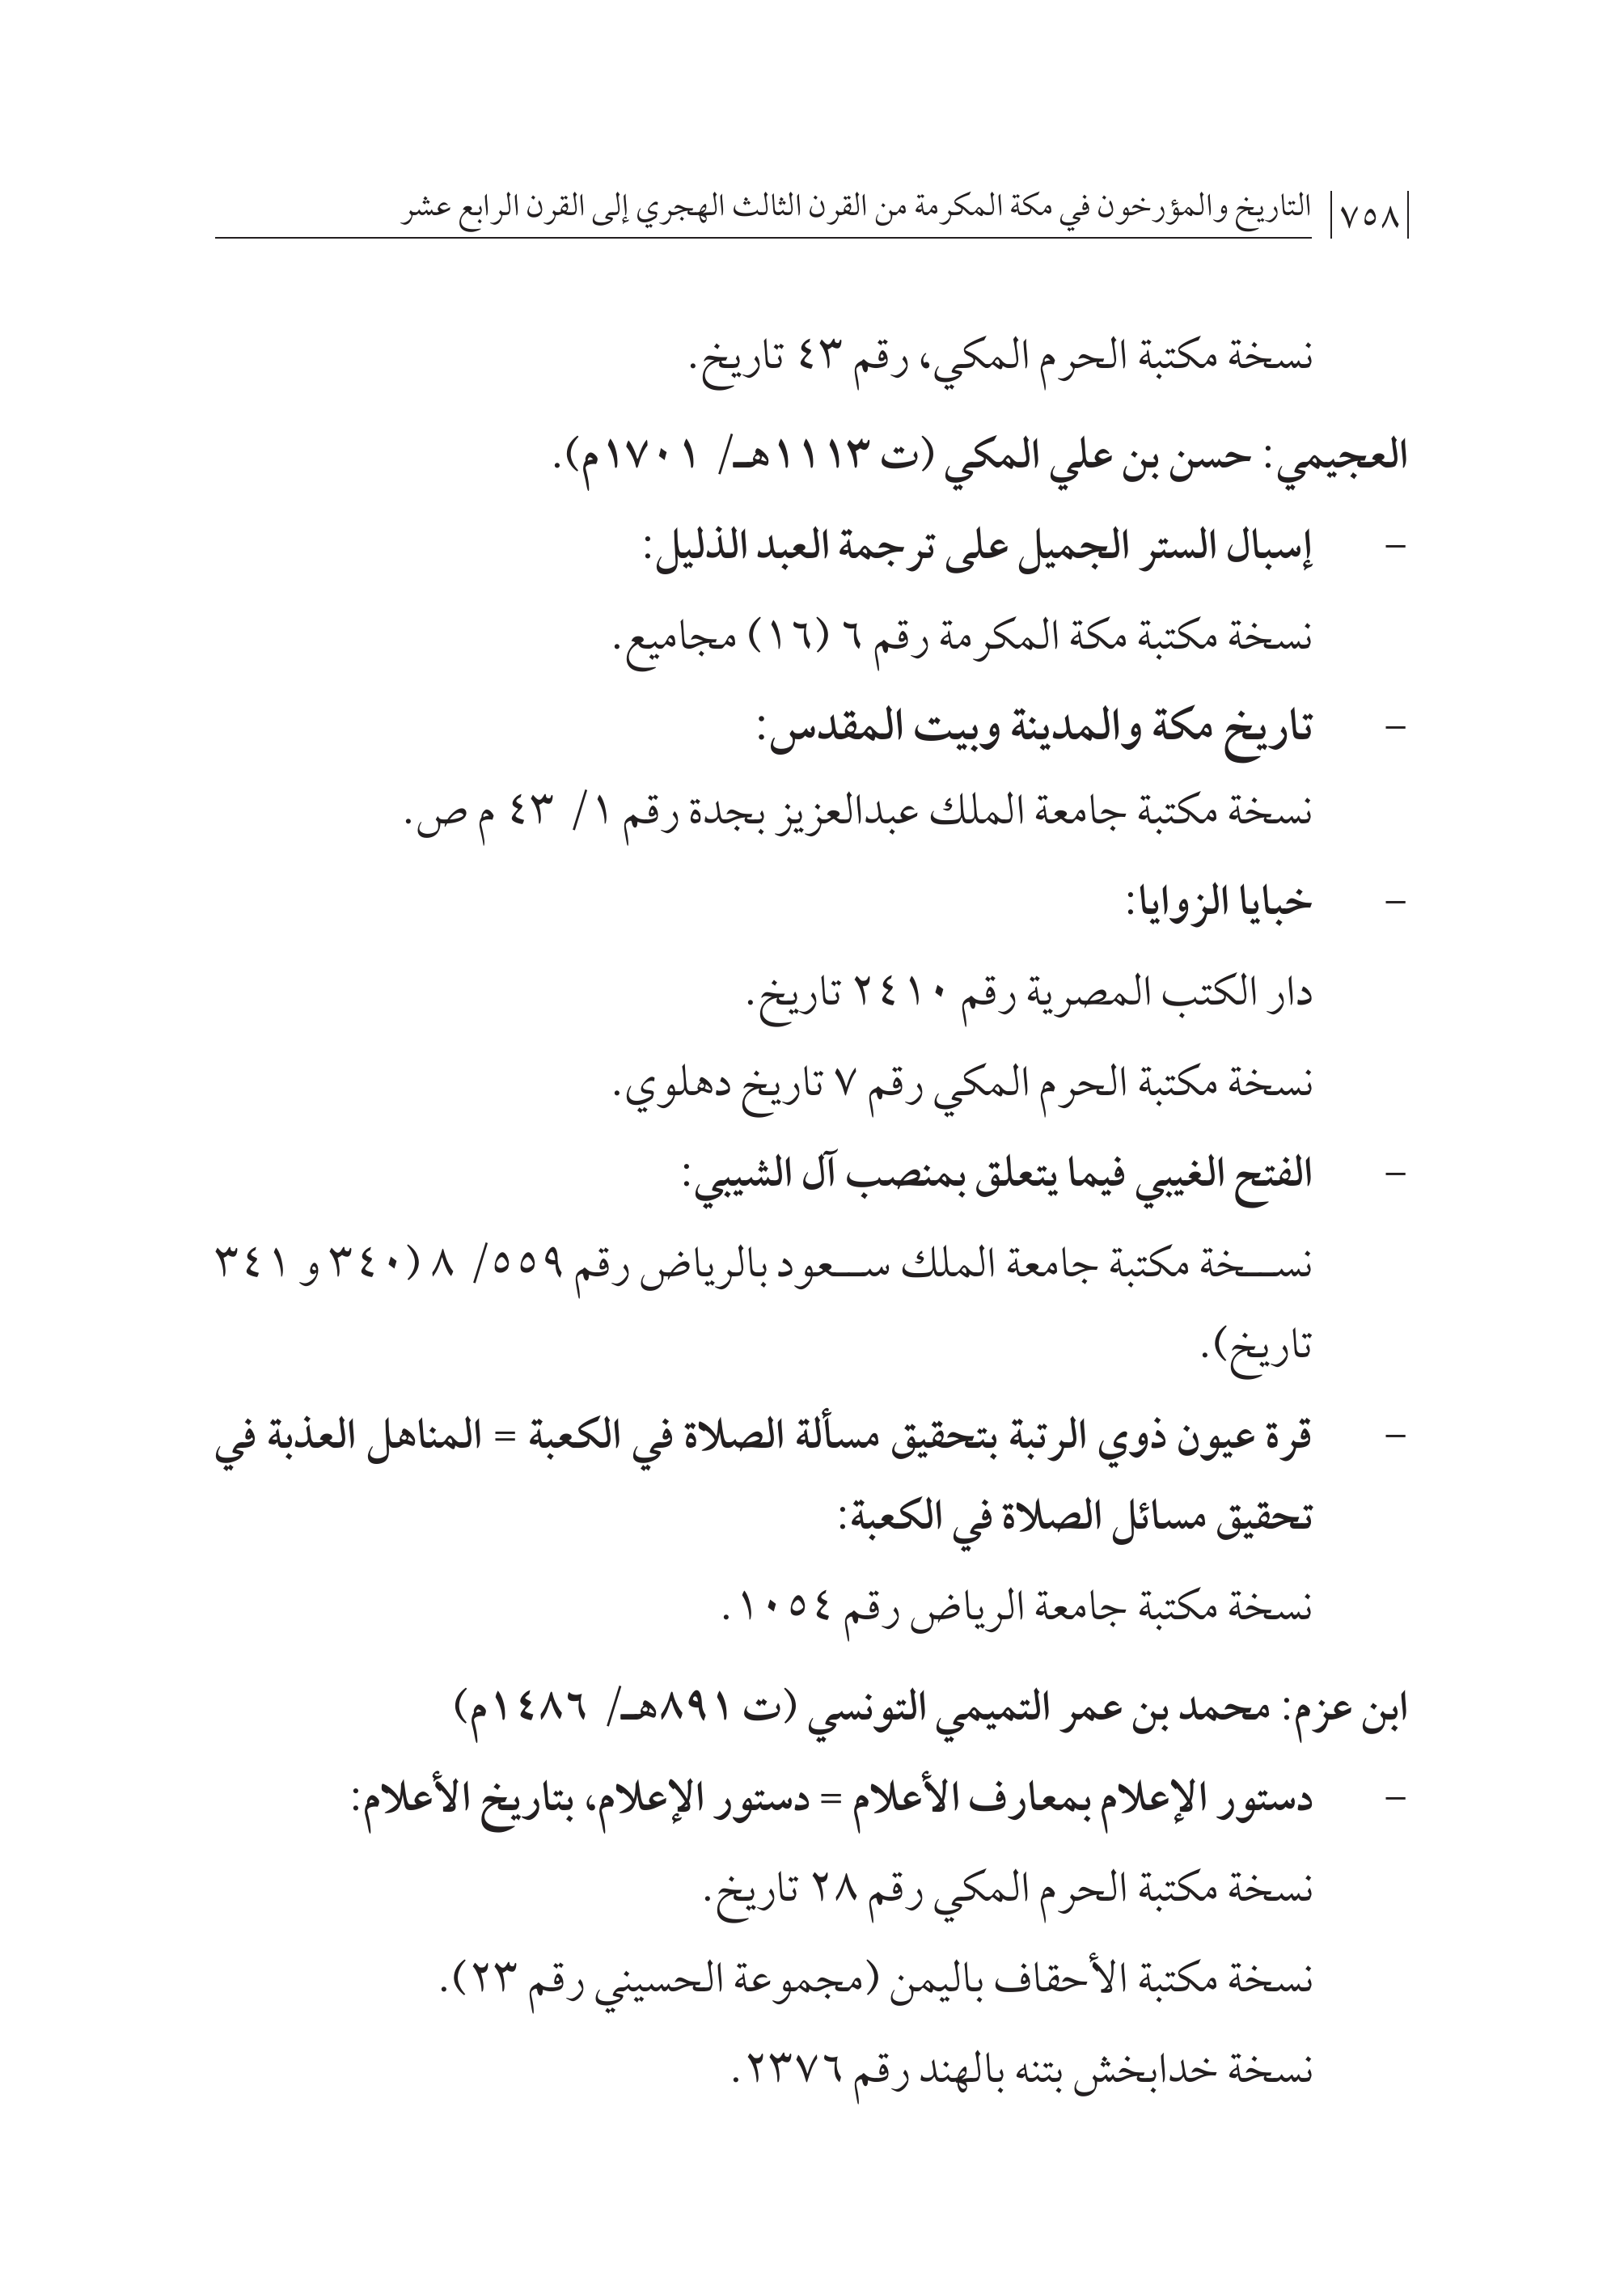 |٧٥٨| التاريخ والمؤرخون في مكة المكرمة من القرن الثالث الهجري إلى القرن الرابع عشر
نسخة مكتبة الحرم المكي، رقم ٤٣ تاريخ.
العجيمي: حسن بن علي المكي (ت ١١١٣هـ/ ١٧٠١م).
– إسبال الستر الجميل على ترجمة العبد الذليل:
نسخة مكتبة مكة المكرمة رقم ٦ (١٦) مجاميع.
– تاريخ مكة والمدينة وبيت المقدس:
نسخة مكتبة جامعة الملك عبدالعزيز بجدة رقم ١/ ٤٣ م ص.
– خبايا الزوايا:
دار الكتب المصرية رقم ٢٤١٠ تاريخ.
نسخة مكتبة الحرم المكي رقم ٧ تاريخ دهلوي.
– الفتح الغيبي فيما يتعلق بمنصب آل الشيبي:
نســخة مكتبة جامعة الملك ســعود بالرياض رقم ٥٥٩/ ٨ (٣٤٠ و ٣٤١
تاريخ).
– قرة عيون ذوي الرتبة بتحقيق مسألة الصلاة في الكعبة = المناهل العذبة في
تحقيق مسائل الصلاة في الكعبة:
نسخة مكتبة جامعة الرياض رقم ١٠٥٤.
ابن عزم: محمد بن عمر التميمي التونسي (ت ٨٩١هـ/ ١٤٨٦م)
– دستور الإعلام بمعارف الأعلام = دستور الإعلام، بتاريخ الأعلام:
نسخة مكتبة الحرم المكي رقم ٢٨ تاريخ.
نسخة مكتبة الأحقاف باليمن (مجموعة الحسيني رقم ٢٣).
نسخة خدابخش بتنه بالهند رقم ٢٣٧٦.